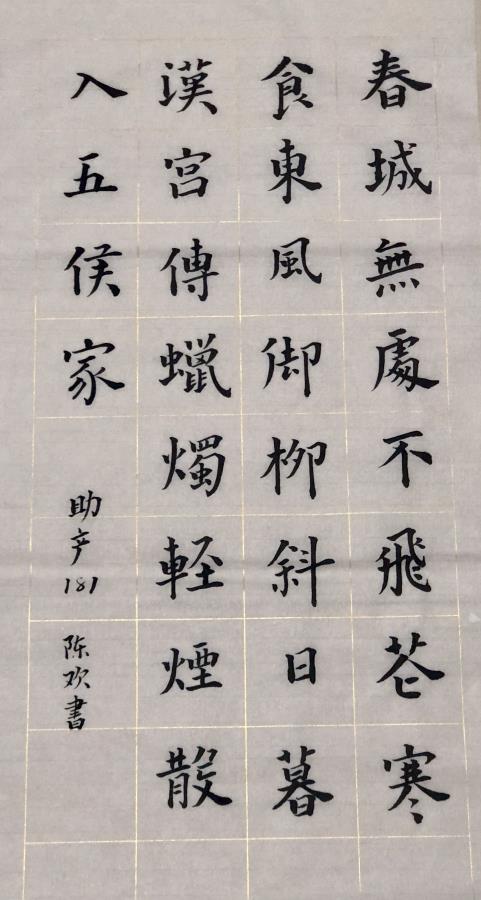 春城無處不飛花寒
食東風御柳斜日暮
漢宮傳蠟燭輕煙散
入五侯家
助产181
陈欢書